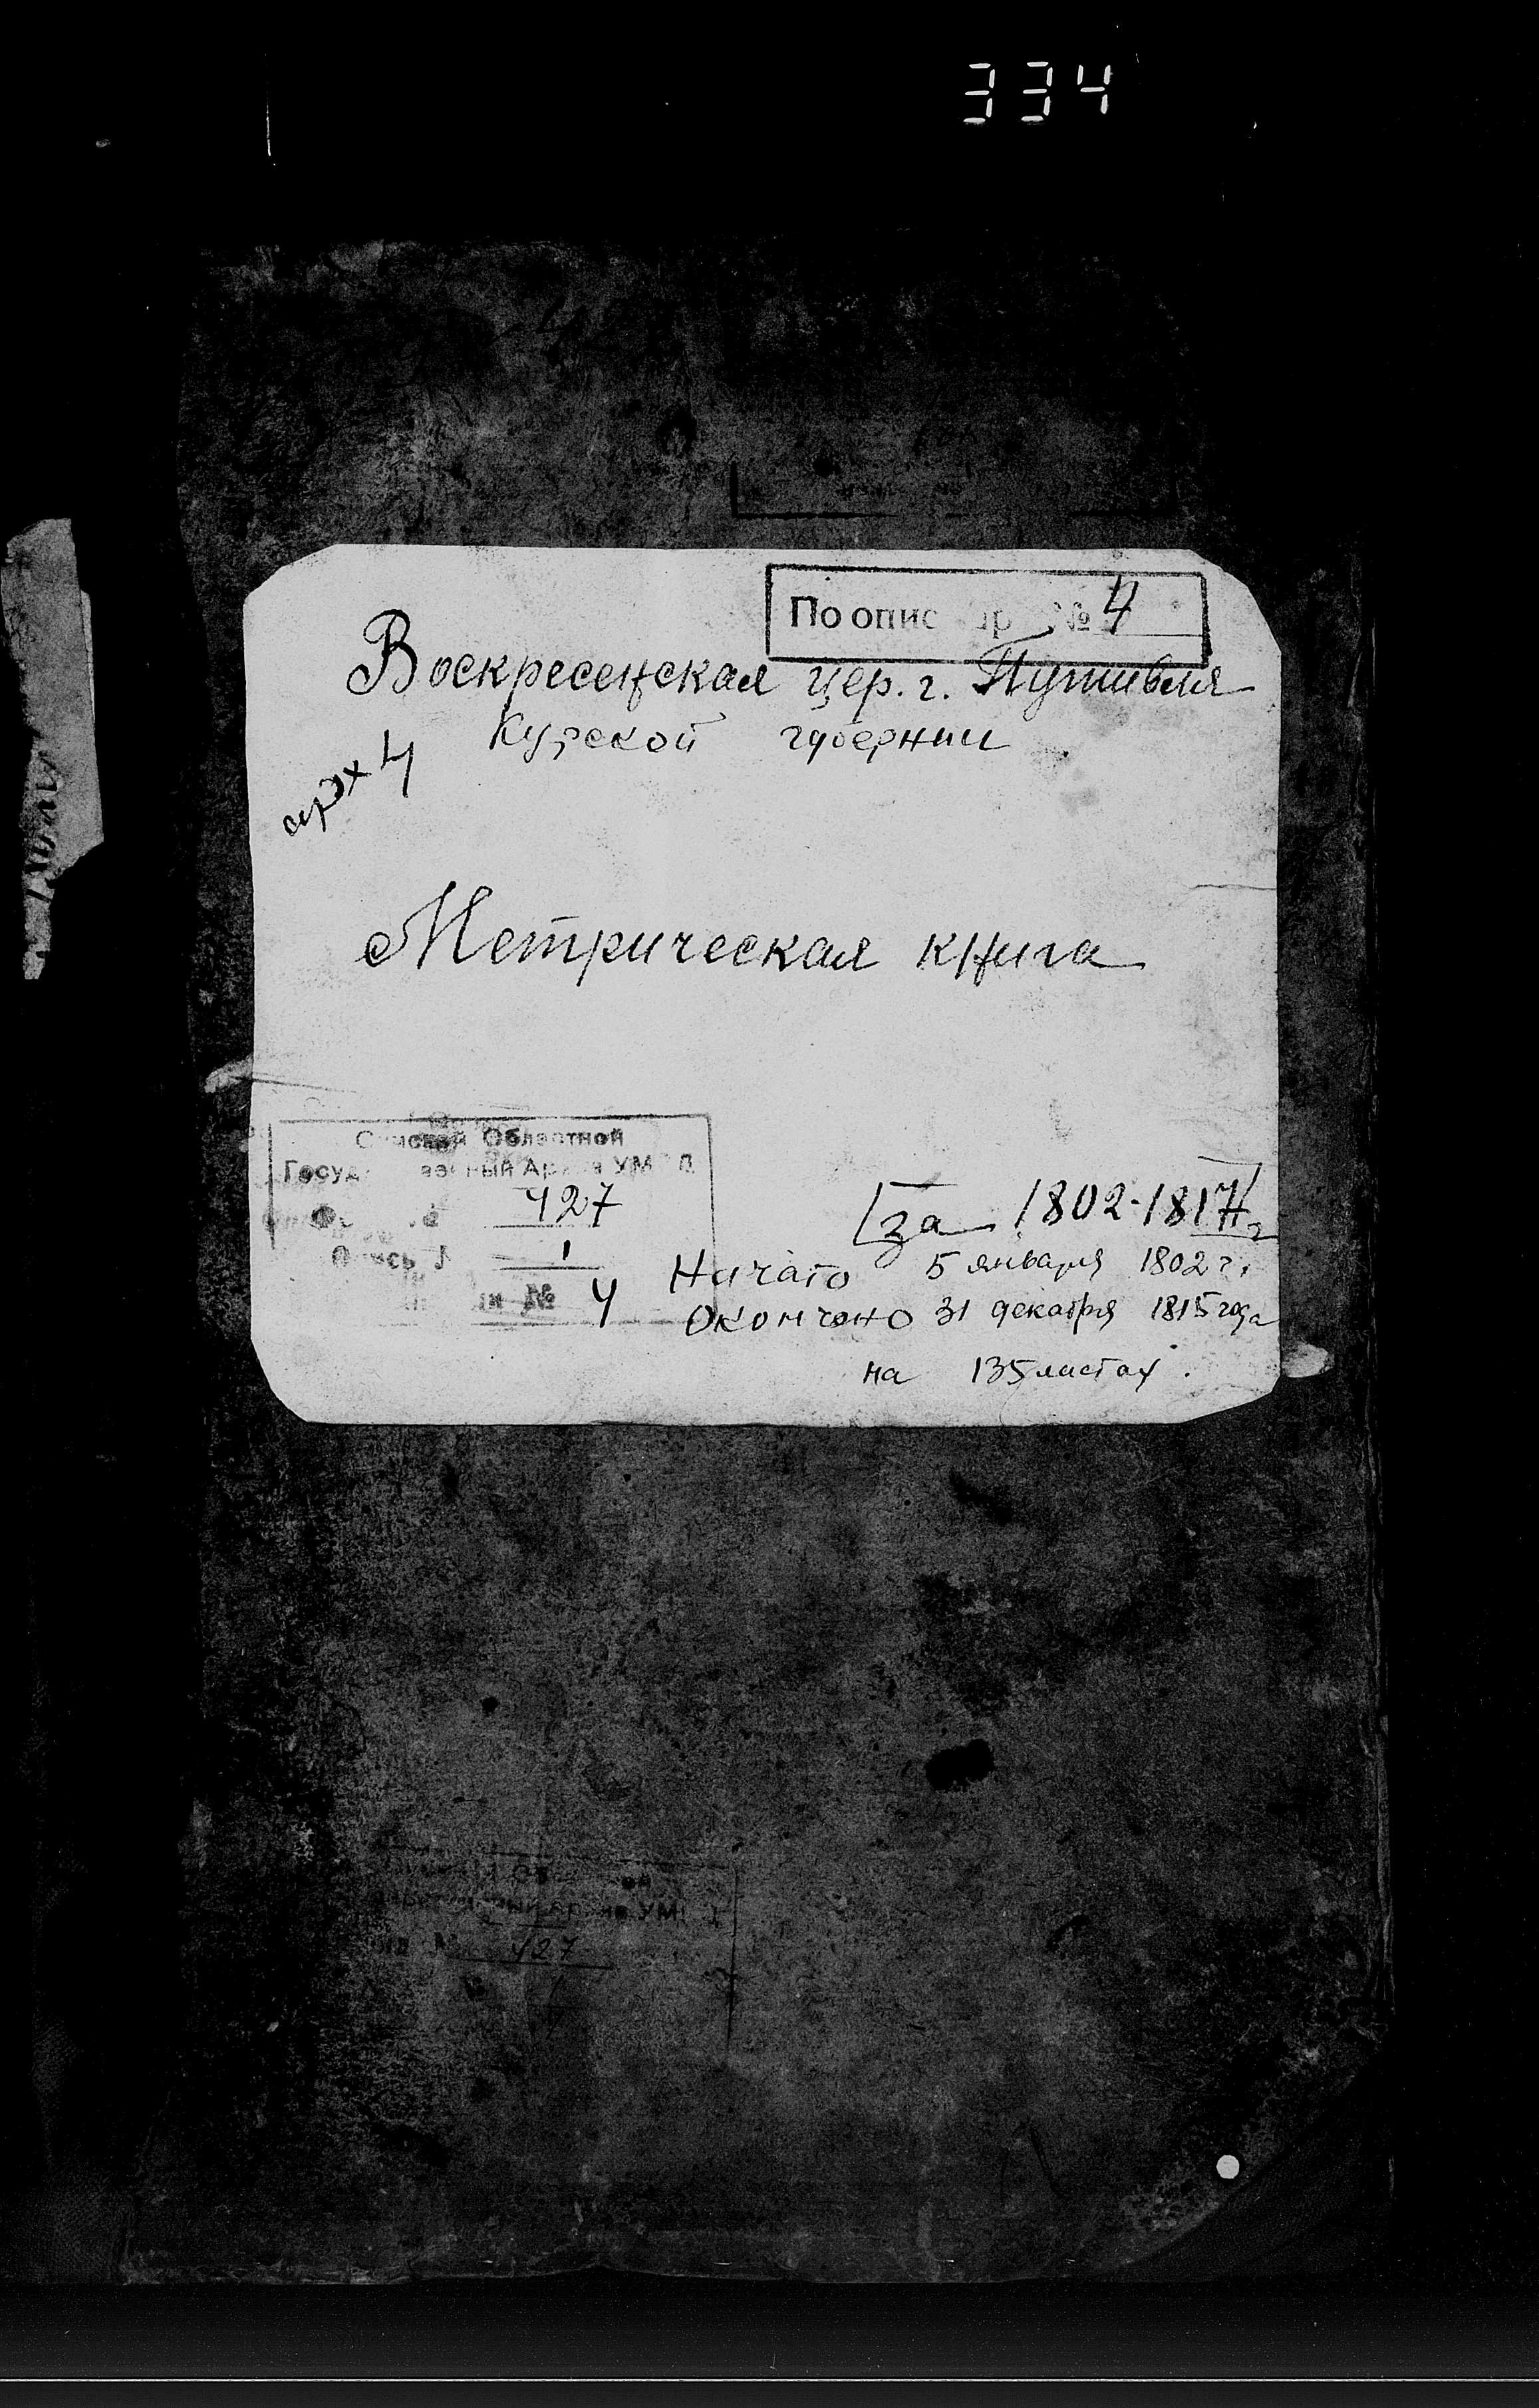 334
По опис № 4
Воскресенская цер. г. Путивля
Курской губернии
арх 4
Метрическая книга
Сумской Областной
Государственный Архив УМВД
427
1
№ 4
за 1802-1817 г.
Начато 5 января 1802 г.
Окончено 31 декабря 1815 года
на 135 листах.
427